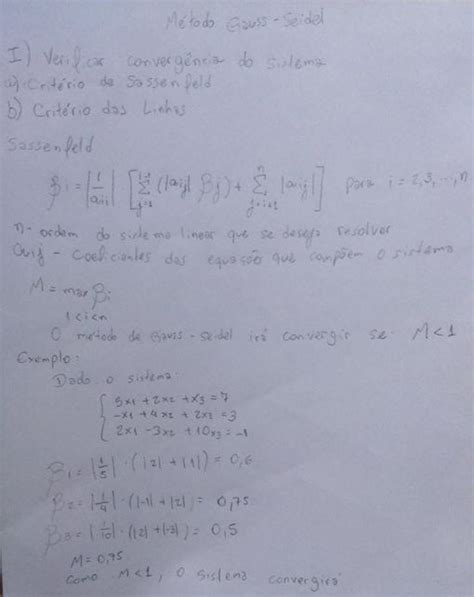 Método Gauss-Seidel
I) Verificar convergência do sistema
a) Critério de Sassenfeld
b) Critério das Linhas
Sassenfeld
βi = |1/aii| · [∑_{j=1}^{i-1} (|aij| βj) + ∑_{j=i+1}^{n} |aij|] para i = 2,3,...,n.
n - ordem do sistema linear que se deseja resolver
aij - coeficientes das equações que compõem o sistema
M = max βi
1<i<n
O método de Gauss-Seidel irá convergir se M<1
Exemplo:
Dado o sistema:
5x1 + 2x2 + x3 = 7
-x1 + 4x2 + 2x3 = 3
2x1 - 3x2 + 10x3 = -1
β1 = |1/5| · (|2| + |1|) = 0,6
β2 = |1/4| · (|-1| + |2|) = 0,75
β3 = |1/10| · (|2| + |-3|) = 0,5
M = 0,75
Como M<1, o sistema convergirá